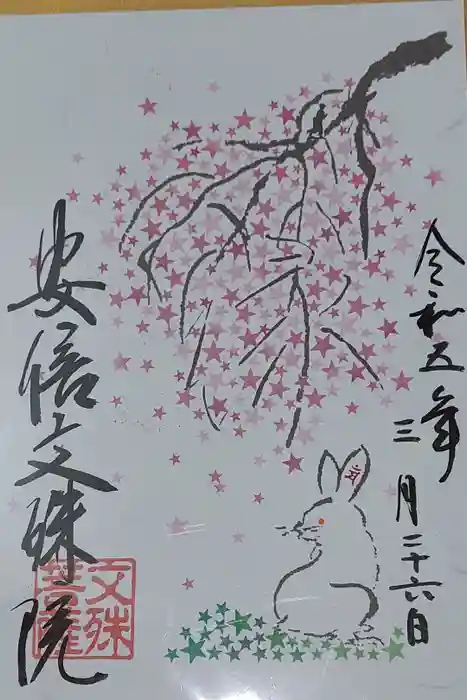 令和五年
三月二十六日
安倍文殊院
文殊
菩薩